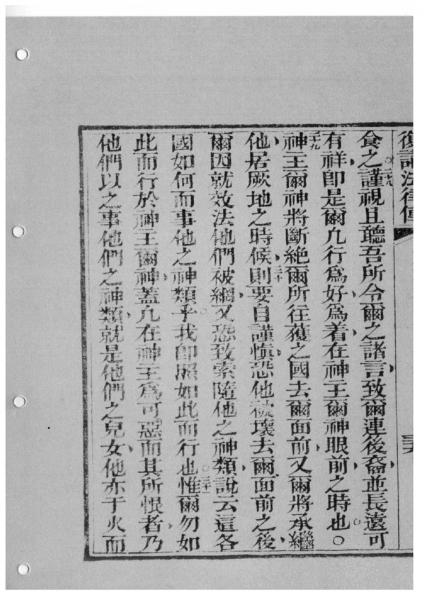 復講法律傳
三六
食之謹視且聽吾所令爾之諸言致爾連後裔並長遠可
有祥即是爾凡行爲好爲着在神王爾神眼前之時也○
神王爾神將斷絕爾所往獲之國去爾面前又爾將承繼
他居厥地之時候則要自謹慎恐他被壞去爾面前之後
爾因就效法他們被綱又恐致索隨他之神類說云這各
國如何而事他之神類乎我即照如此而行也惟爾勿如
此而行於神王爾神蓋凡在神王爲可惡而其所恨者乃
他們以之事他們之神類就是他們之兒女他亦于火而